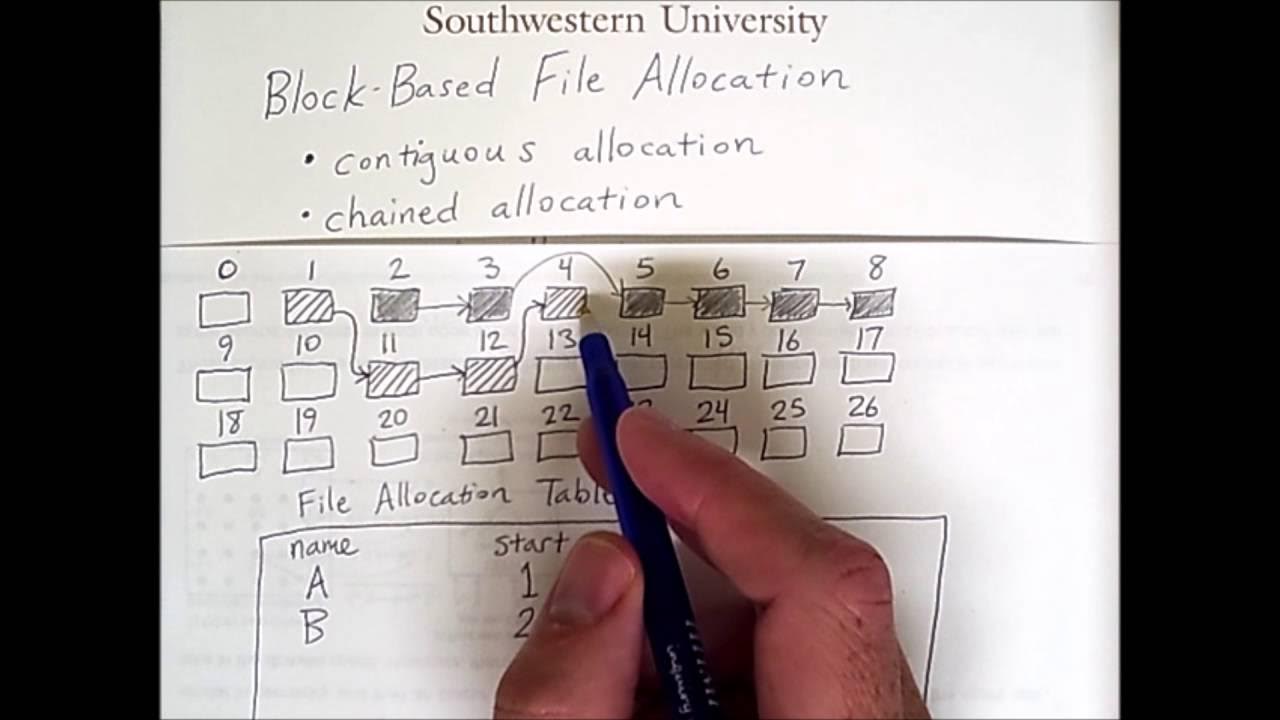 Southwestern University
Block-Based File Allocation
• contiguous allocation
• chained allocation
0 1 2 3 4 5 6 7 8
9 10 11 12 13 14 15 16 17
18 19 20 21 22 24 25 26
File Allocation Table
name start
A 1
B 2